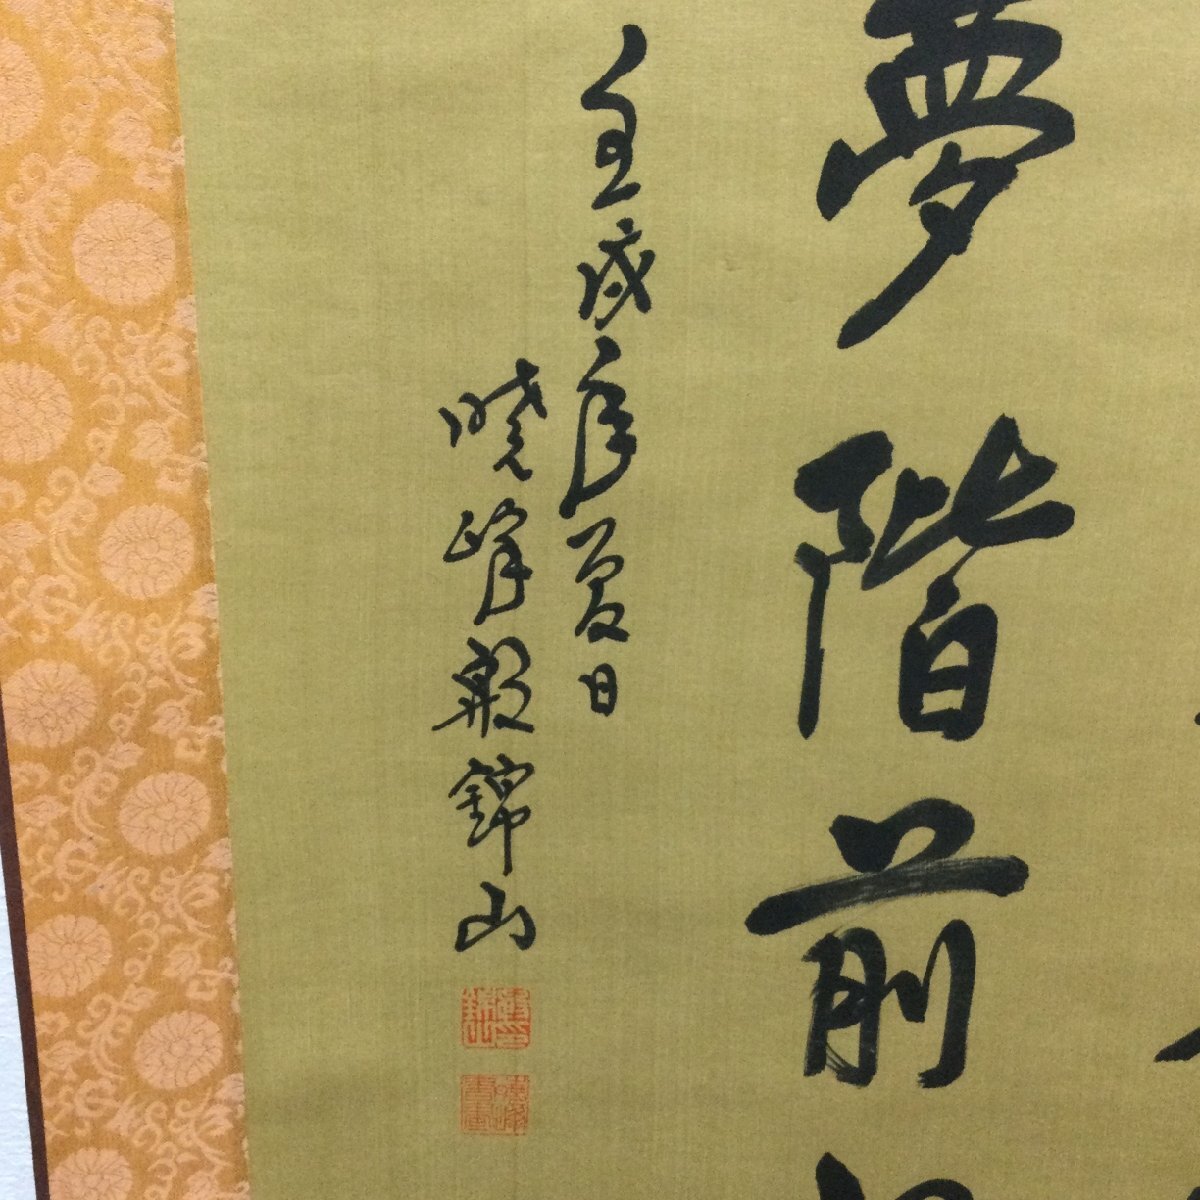 夢階前
壬戌年夏日
曉峰殷錦山